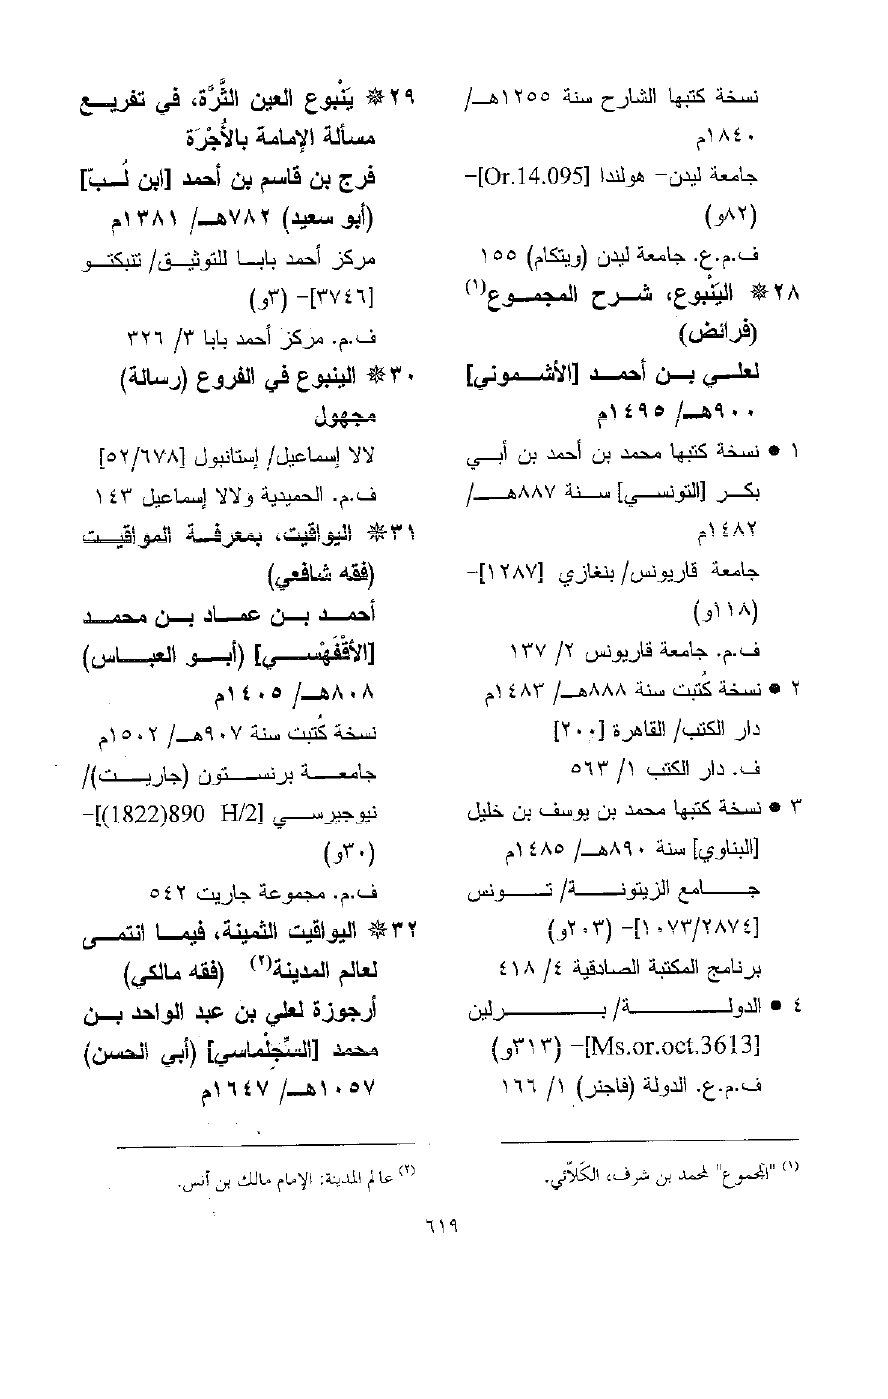 نسخة كتبها الشارح سنة ١٢٥٥هـ/
١٨٤٠م
جامعة ليدن- هولندا [Or.14.095]-
(٨٢و)
ف.م.ع. جامعة ليدن (ويتكام) ١٥٥
٢٨ * اليَنْبوع، شرح المجموع(١)
(فرائض)
لعلي بن أحمد [الأشموني]
٩٠٠هـ/ ١٤٩٥م
١ • نسخة كتبها محمد بن أحمد بن أبي
بكر [التونسي] سنة ٨٨٧هـ/
١٤٨٢م
جامعة قاريونس/ بنغازي [١٢٨٧]-
(١١٨و)
ف.م. جامعة قاريونس ٢/ ١٣٧
٢ • نسخة كُتبت سنة ٨٨٨هـ/ ١٤٨٣م
دار الكتب/ القاهرة [٢٠٠]
ف. دار الكتب ١/ ٥٦٣
٣ • نسخة كتبها محمد بن يوسف بن خليل
[البناوي] سنة ٨٩٠هـ/ ١٤٨٥م
جامع الزيتونة/ تونس
[١٠٧٣/٢٨٧٤]- (٢٠٣و)
برنامج المكتبة الصادقية ٤/ ٤١٨
٤ • الدولة/ برلين
[Ms.or.oct.3613]- (٣١٣و)
ف.م.ع. الدولة (فاجنر) ١/ ١٦٦
(١) "المجموع" لمحمد بن شرف، الكَلاّئي.
٢٩ * يَنْبوع العين الثَّرَّة، في تفريع
مسألة الإمامة بالأُجْرَة
فرج بن قاسم بن أحمد [ابن لُبّ]
(أبو سعيد) ٧٨٢هـ/ ١٣٨١م
مركز أحمد بابا للتوثيق/ تنبكتو
[٣٧٤٦]- (٣و)
ف.م. مركز أحمد بابا ٣/ ٣٢٦
٣٠ * الينبوع في الفروع (رسالة)
مجهول
لالا إسماعيل/ إستانبول [٥٢/٦٧٨]
ف.م. الحميدية ولالا إسماعيل ١٤٣
٣١ * اليواقيت، بمعرفة المواقيت
(فقه شافعي)
أحمد بن عماد بن محمد
[الأقْفَهْسي] (أبو العباس)
٨٠٨هـ/ ١٤٠٥م
نسخة كُتبت سنة ٩٠٧هـ/ ١٥٠٢م
جامعة برنستون (جاريت)/
نيوجيرسي [890 H/2(1822)]-
(٣٠و)
ف.م. مجموعة جاريت ٥٤٢
٣٢ * اليواقيت الثمينة، فيما انتمى
لعالم المدينة(٢) (فقه مالكي)
أرجوزة لعلي بن عبد الواحد بن
محمد [السِّجِلْماسي] (أبي الحسن)
١٠٥٧هـ/ ١٦٤٧م
(٢) عالم المدينة: الإمام مالك بن أنس.
٦١٩